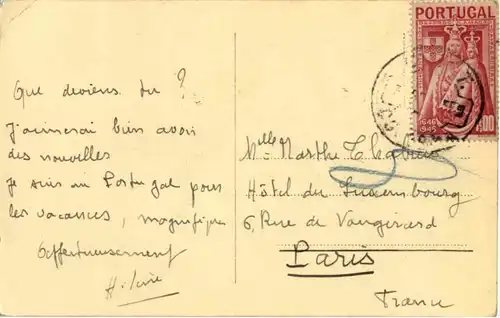 Que deviens tu ?
J'aimerai bien avoir
des nouvelles
Je suis au Portugal pour
les vacances, magnifique
affectueusement
PORTUGAL
1646
1946
1$00
Mlle Marthe
Hôtel du Luxembourg
6, Rue de Vaugirard
Paris
France